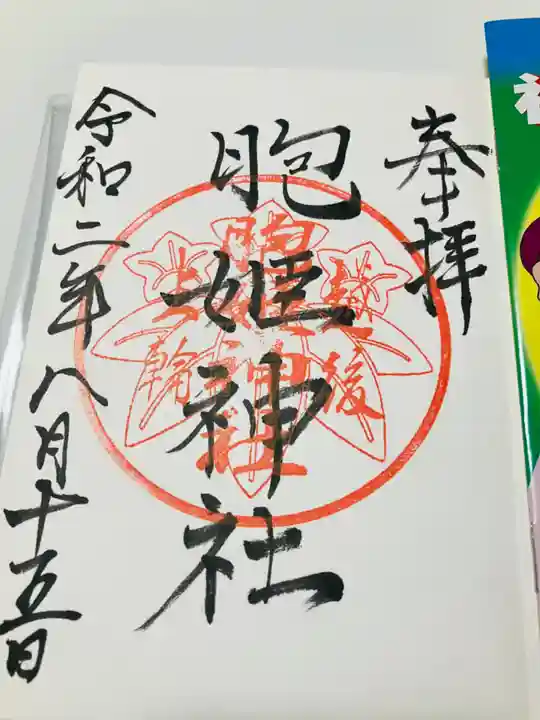 奉拝
胞姫神社
越後
胞姫神社
令和二年八月十五日